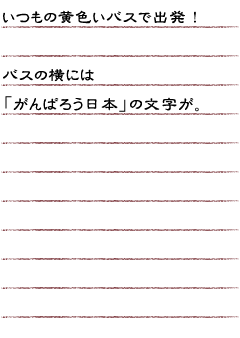 いつもの黄色いバスで出発！
バスの横には
「がんばろう日本」の文字が。